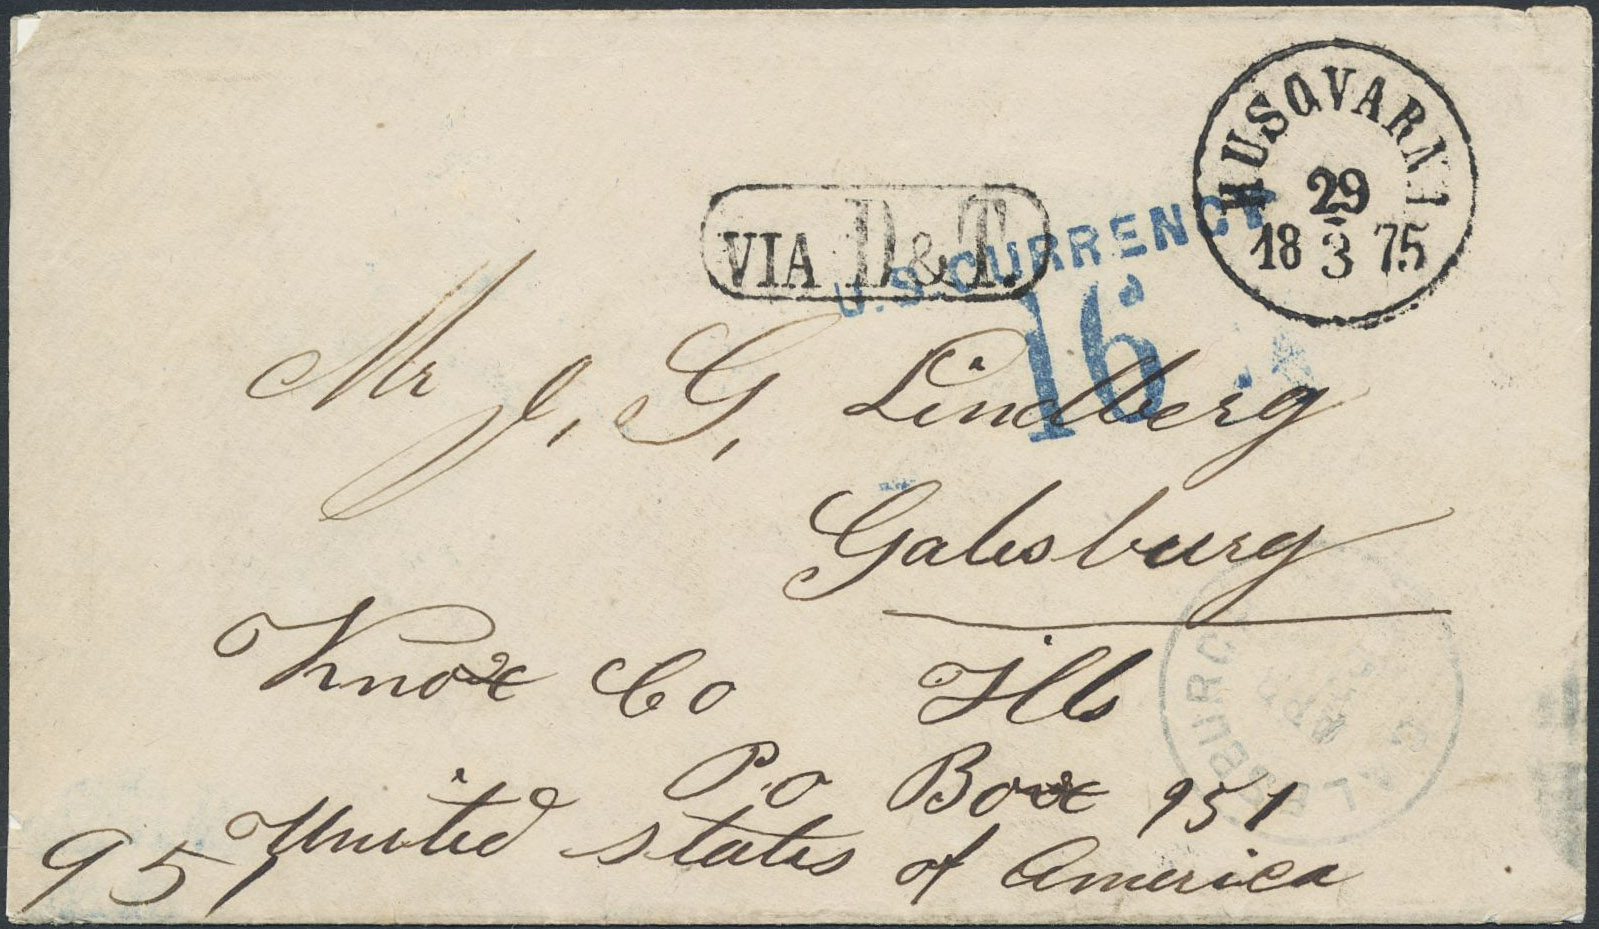 HUSQVARNA
29
18 3 75
VIA D&T.
U.S. CURRENCY
16
Mr J. G. Lindberg
Galesburg
Knox Co Ills
P.O Box 951
United states of America
951